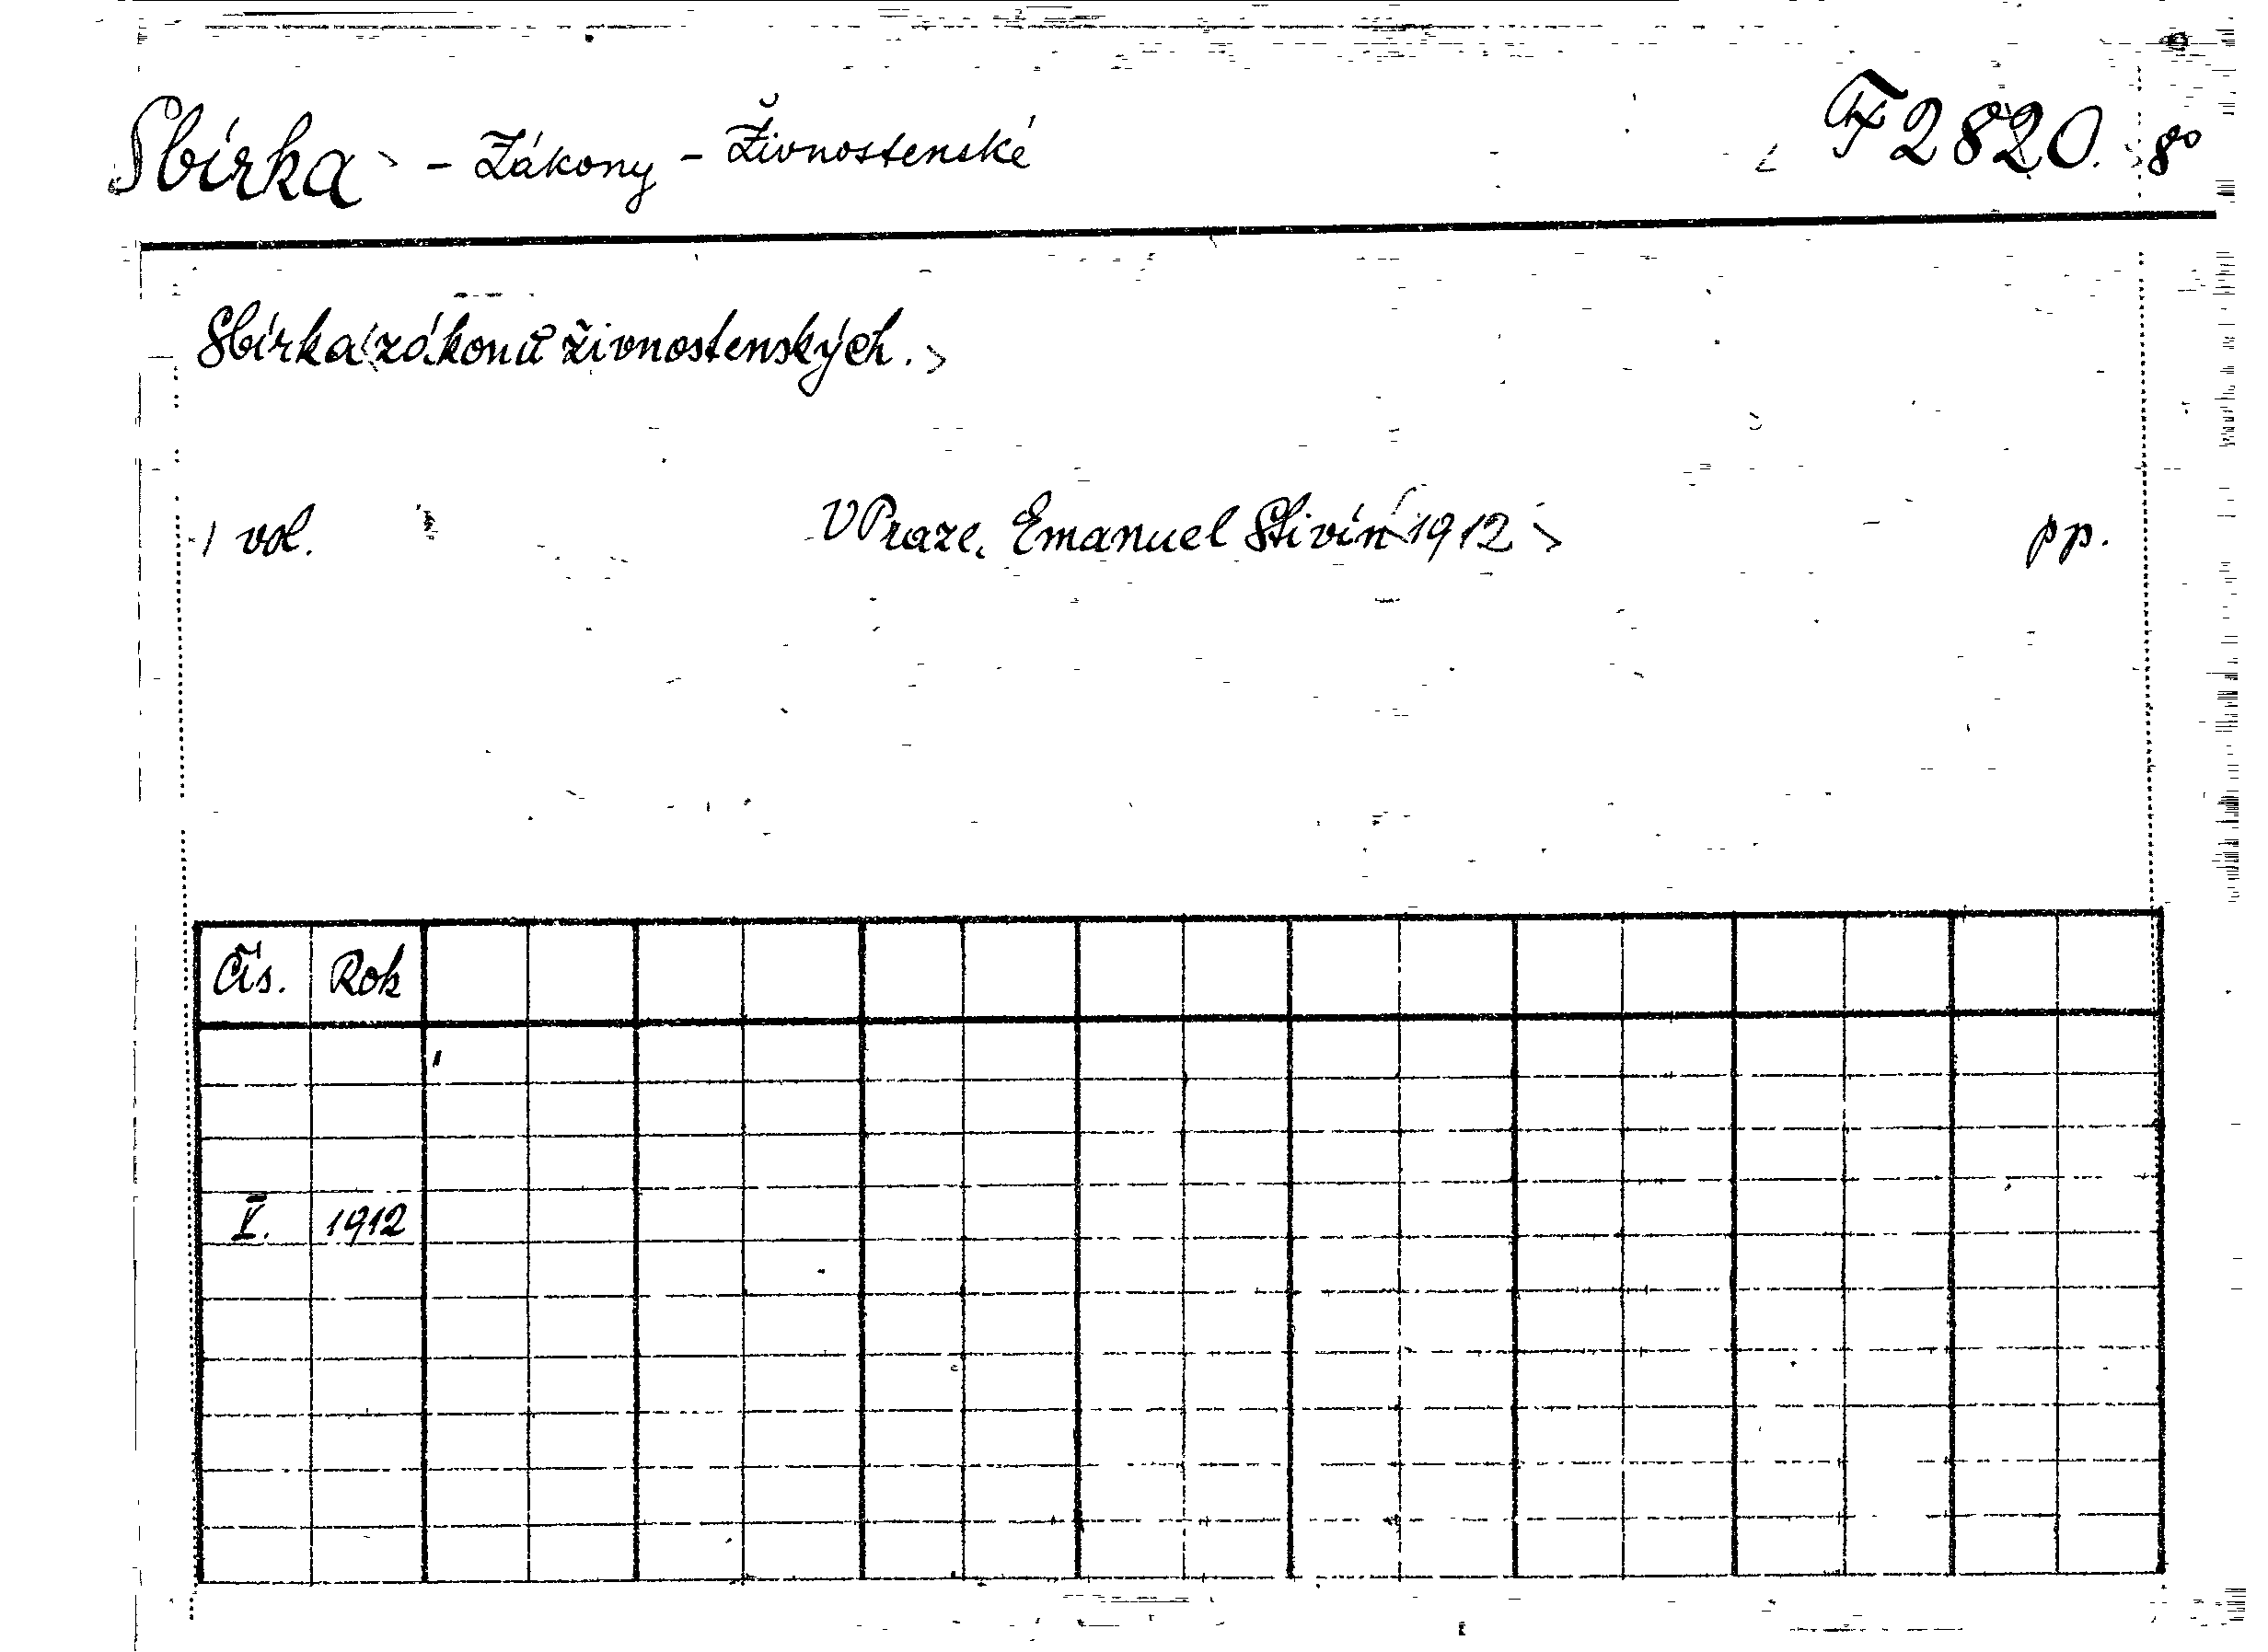 Sbírka - Zákony - Živnostenské F 2820. 8°
Sbírka zákonů živnostenských.
1 vol. V Praze, Emanuel Stivín 1912 pp.
Čís. Rok
V. 1912